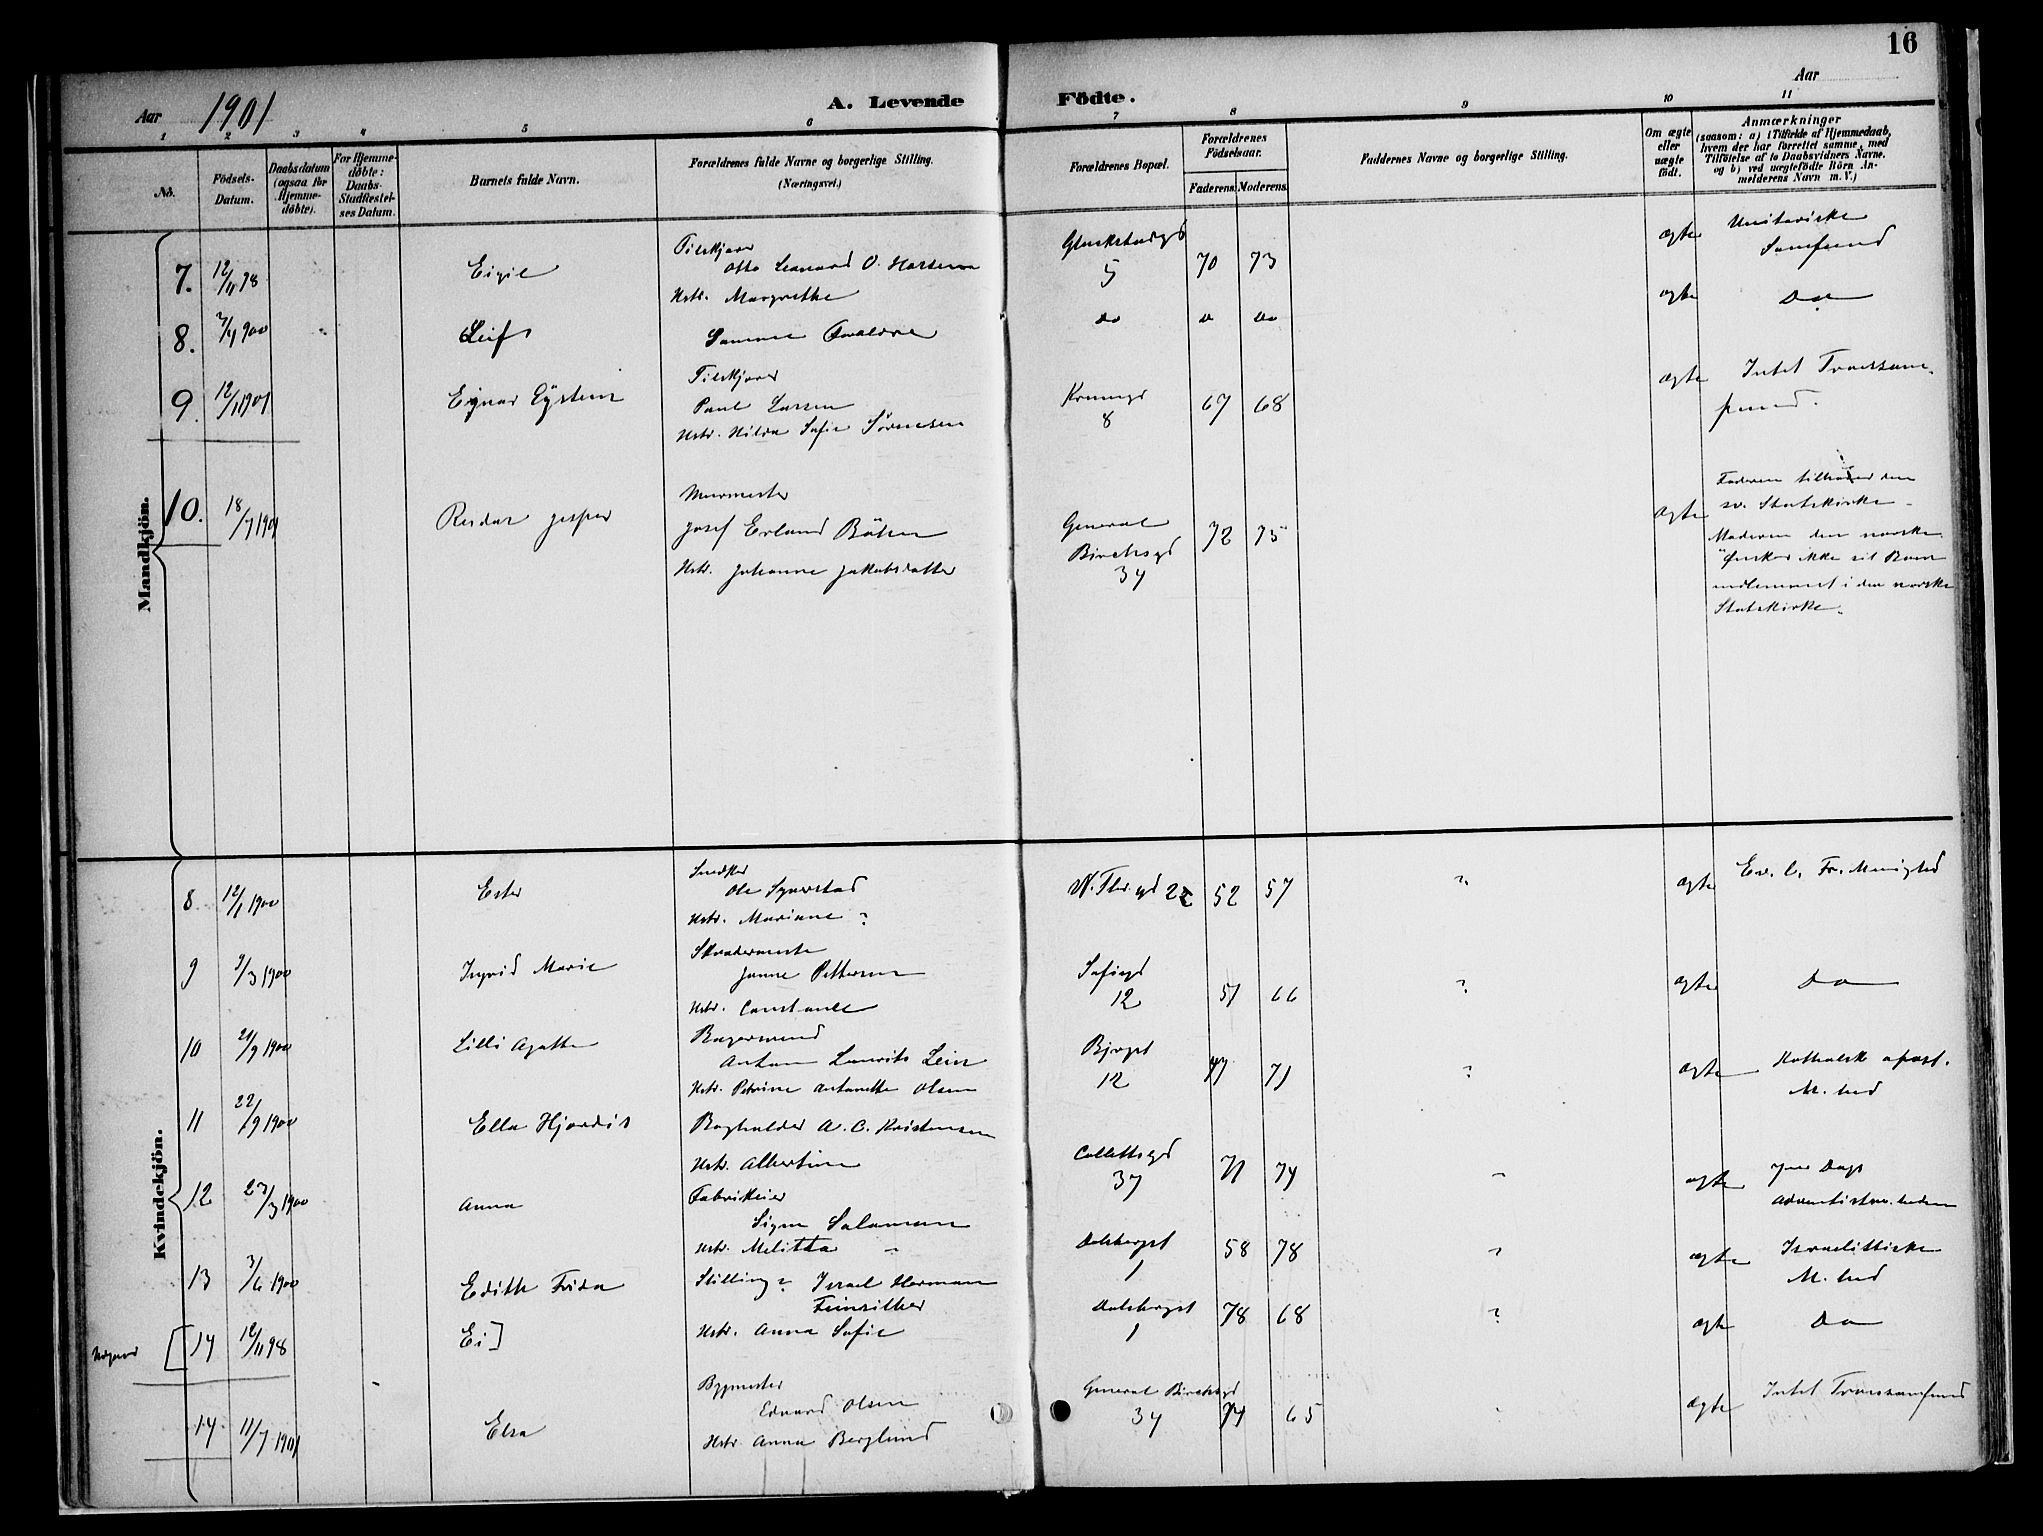 16
Aar 1901
A. Levende Födte.
Aar
1 2 3 4 5 6 7 8 9 10 11
No.
Fødsels-Datum.
Daabsdatum (ogsaa for Hjemme-døbte).
For Hjemme-døbte: Daabs-Stadfæstel-ses Datum.
Barnets fulde Navn.
Forældrenes fulde Navne og borgerlige Stilling.
(Næringsvei.)
Forældrenes Bopæl.
Forældrenes Fødselsaar.
Faderens. Moderens.
Faddernes Navne og borgerlige Stilling.
Om ægte eller uægte født.
Anmærkninger
(saasom: a) i Tilfælde af Hjemmedaab,
hvem der har forrettet samme, med
Tilføielse af to Daabsvidners Navne,
og b) ved uægtefødte Börn An-
melderens Navn m. V.)
Mandkjön.
7. 12/11 98 Eigil
Tilskjærer
Otto Leonard O. Hansen
Hstr. Margrethe
5 70 73 ægte Unitariske
Samfund
8. 3/4 1900 Leif Samme Forældre do do ægte Do
9. 12/1 1901 Eynar Eystein
Tilskjærer
Paul Larsen
Hstr. Hilda Sofie Sörensen
8 67 68 ægte Intet Troessam-
fund.
10. 18/7 1901 Reidar Jesper
Murmester
Josef Erland
Hstr. Johanne Jakobsdatter
General
Birchsgd
34 72 75 ægte
Faderen tilhører den
sv. Statskirke
Moderen den norske.
Ønsker ikke sit Barn
indlemmet i den norske
Statskirke.
Kvindekjön.
8 12/1 1900 Ester
Snedker
Ole
Hstr. Mariane ?
22 52 57 ? ægte Ev. l. Fr. Menighed
9 9/3 1900 Ingvid Marie
Skradermester
Janne Pettersen
Hstr. Constance
Sofiegd
12 57 66 ? ægte Do
10 21/9 1900 Lilli Agathe
Anton Laurits Lein
Hstr. Petrine Antonette Olsen
12 71 ? ægte Katholsk apost.
M.hed
11 22/9 1900 Ella Hjördis
Bogholder A. C. Kristensen
Hstr. Albertine
Collettsgd
37 71 74 " ægte Syv Dags
12 23/3 1900 Anna
Fabrikeier
Signe Salomon
Hstr. Melitta "
Dalsbergst
1 58 78 " ægte Israelittiske
M.hed
13 3/6 1900 Edith Frida
Stilling? Israel Herman
Feinsilber
Hstr. Anna Sofie
Dalsbergst
1 78 68 ? ægte Do
[14 12/11 98 Ei]
14. 11/7 1901 Elsa
Bygmester
Edvard Olsen
Hstr Anna Berglund
General Birchsgd
34 74 65 ægte Intet Troessamfund